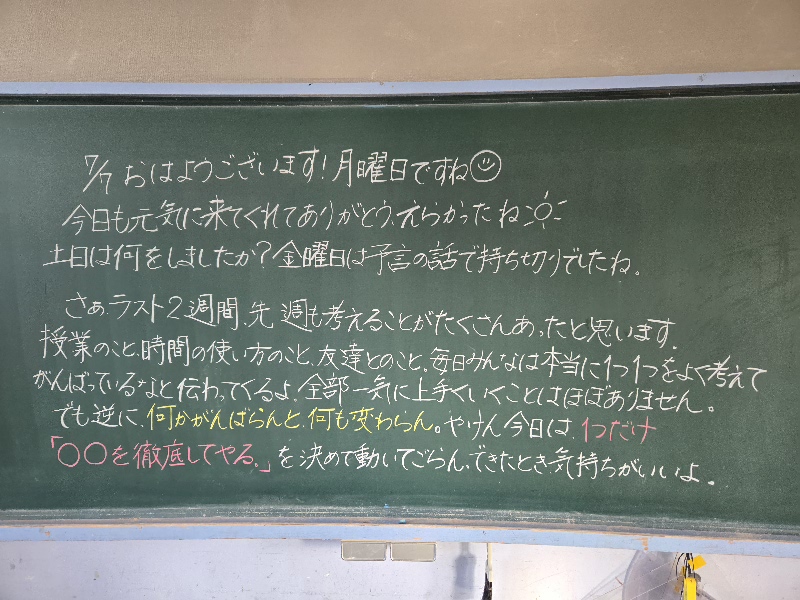 7/7 おはようございます!月曜日ですね
今日も元気に来てくれてありがとう、えらかったね
土日は何をしましたか?金曜日は予言の話で持ち切りでしたね。
さぁ、ラスト2週間、先週も考えることがたくさんあったと思います。
授業のこと、時間の使い方のこと、友達とのこと、毎日みんなは本当に1つ1つをよく考えて
がんばっているなと伝わってくるよ。全部一気に上手くいくことはほぼありません。
でも逆に、何かがんばらんと、何も変わらん。やけん今日は、1つだけ
「〇〇を徹底してやる。」を決めて動いてごらん、できたとき、気持ちがいいよ。